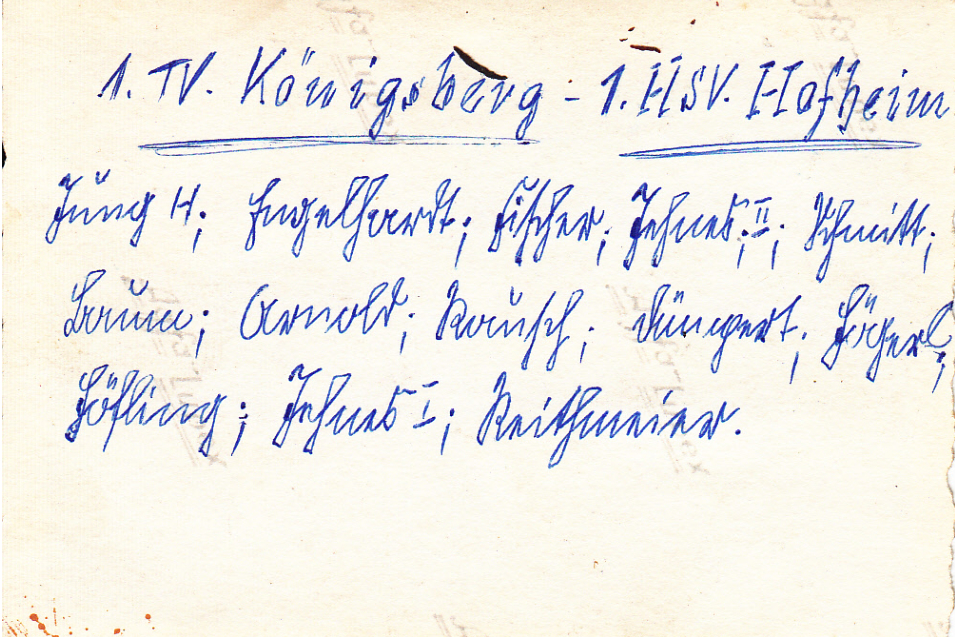 1. TV. Königsberg - 1. HSV. Hofheim
Jüng H; Engelhardt; Fischer; Jehnes; II; Schmitt;
Baum; Arnold; Rausch; Düngert; Högerl;
Höfling; Jehnes I; Reithmeier.